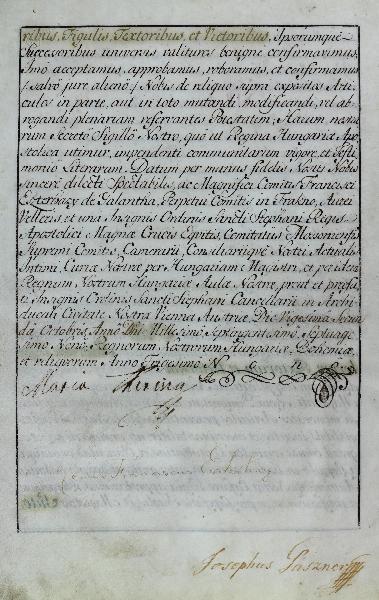 ribus, Figulis, Textoribus, et Vietoribus, Ipsorumque
Successoribus universis valituras benigne confirmavimus
Imo acceptamus, approbamus, roboramus, et confirmamus
(salvo jure alieno) Nobis de reliquo supra expositos Arti,
culos in parte, aut in toto mutandi, modificandi, vel ab,
rogandi plenariam reservantes Potestatem; Harum nostra,
rum Secreto Sigillo Nostro, quo ut Regina Hungariæ Apo,
stolica utimur, impendenti communitarum vigore et Testi,
monio Literarum. Datum per manus fidelis Nostri Nobis
sincere dilecti Spectabilis, ac Magnifici Comitis Francisci
Eszterhazy de Galantha, Perpetui Comitis in Frakno, Aurei
Velleris, et una Insignis Ordinis Sancti Stephani Regis
Apostolici Magnæ Crucis Equitis, Comitatus Mosoniensis
Supremi Comitis, Camerarii, Consiliariique Nostri Actualis
Intimi, Curiæ Nostræ per Hungariam Magistri, et per idem
Regnum Nostrum Hungariæ Aulæ Nostræ, prout et præfa,
ti Insignis Ordinis Sancti Stephani Cancellarii in Archi
ducali Civitate Nostra Vienna Austriæ, Die Vigesima Secun
da Octobris, Anno Dni Millesimo Septingentesimo Septuage
simo Nono, Regnorum Nostrorum Hungariæ Bohemiæ,
et reliquorum Anno Trigesimo Nono
Maria Theresia
Josephus Paszner